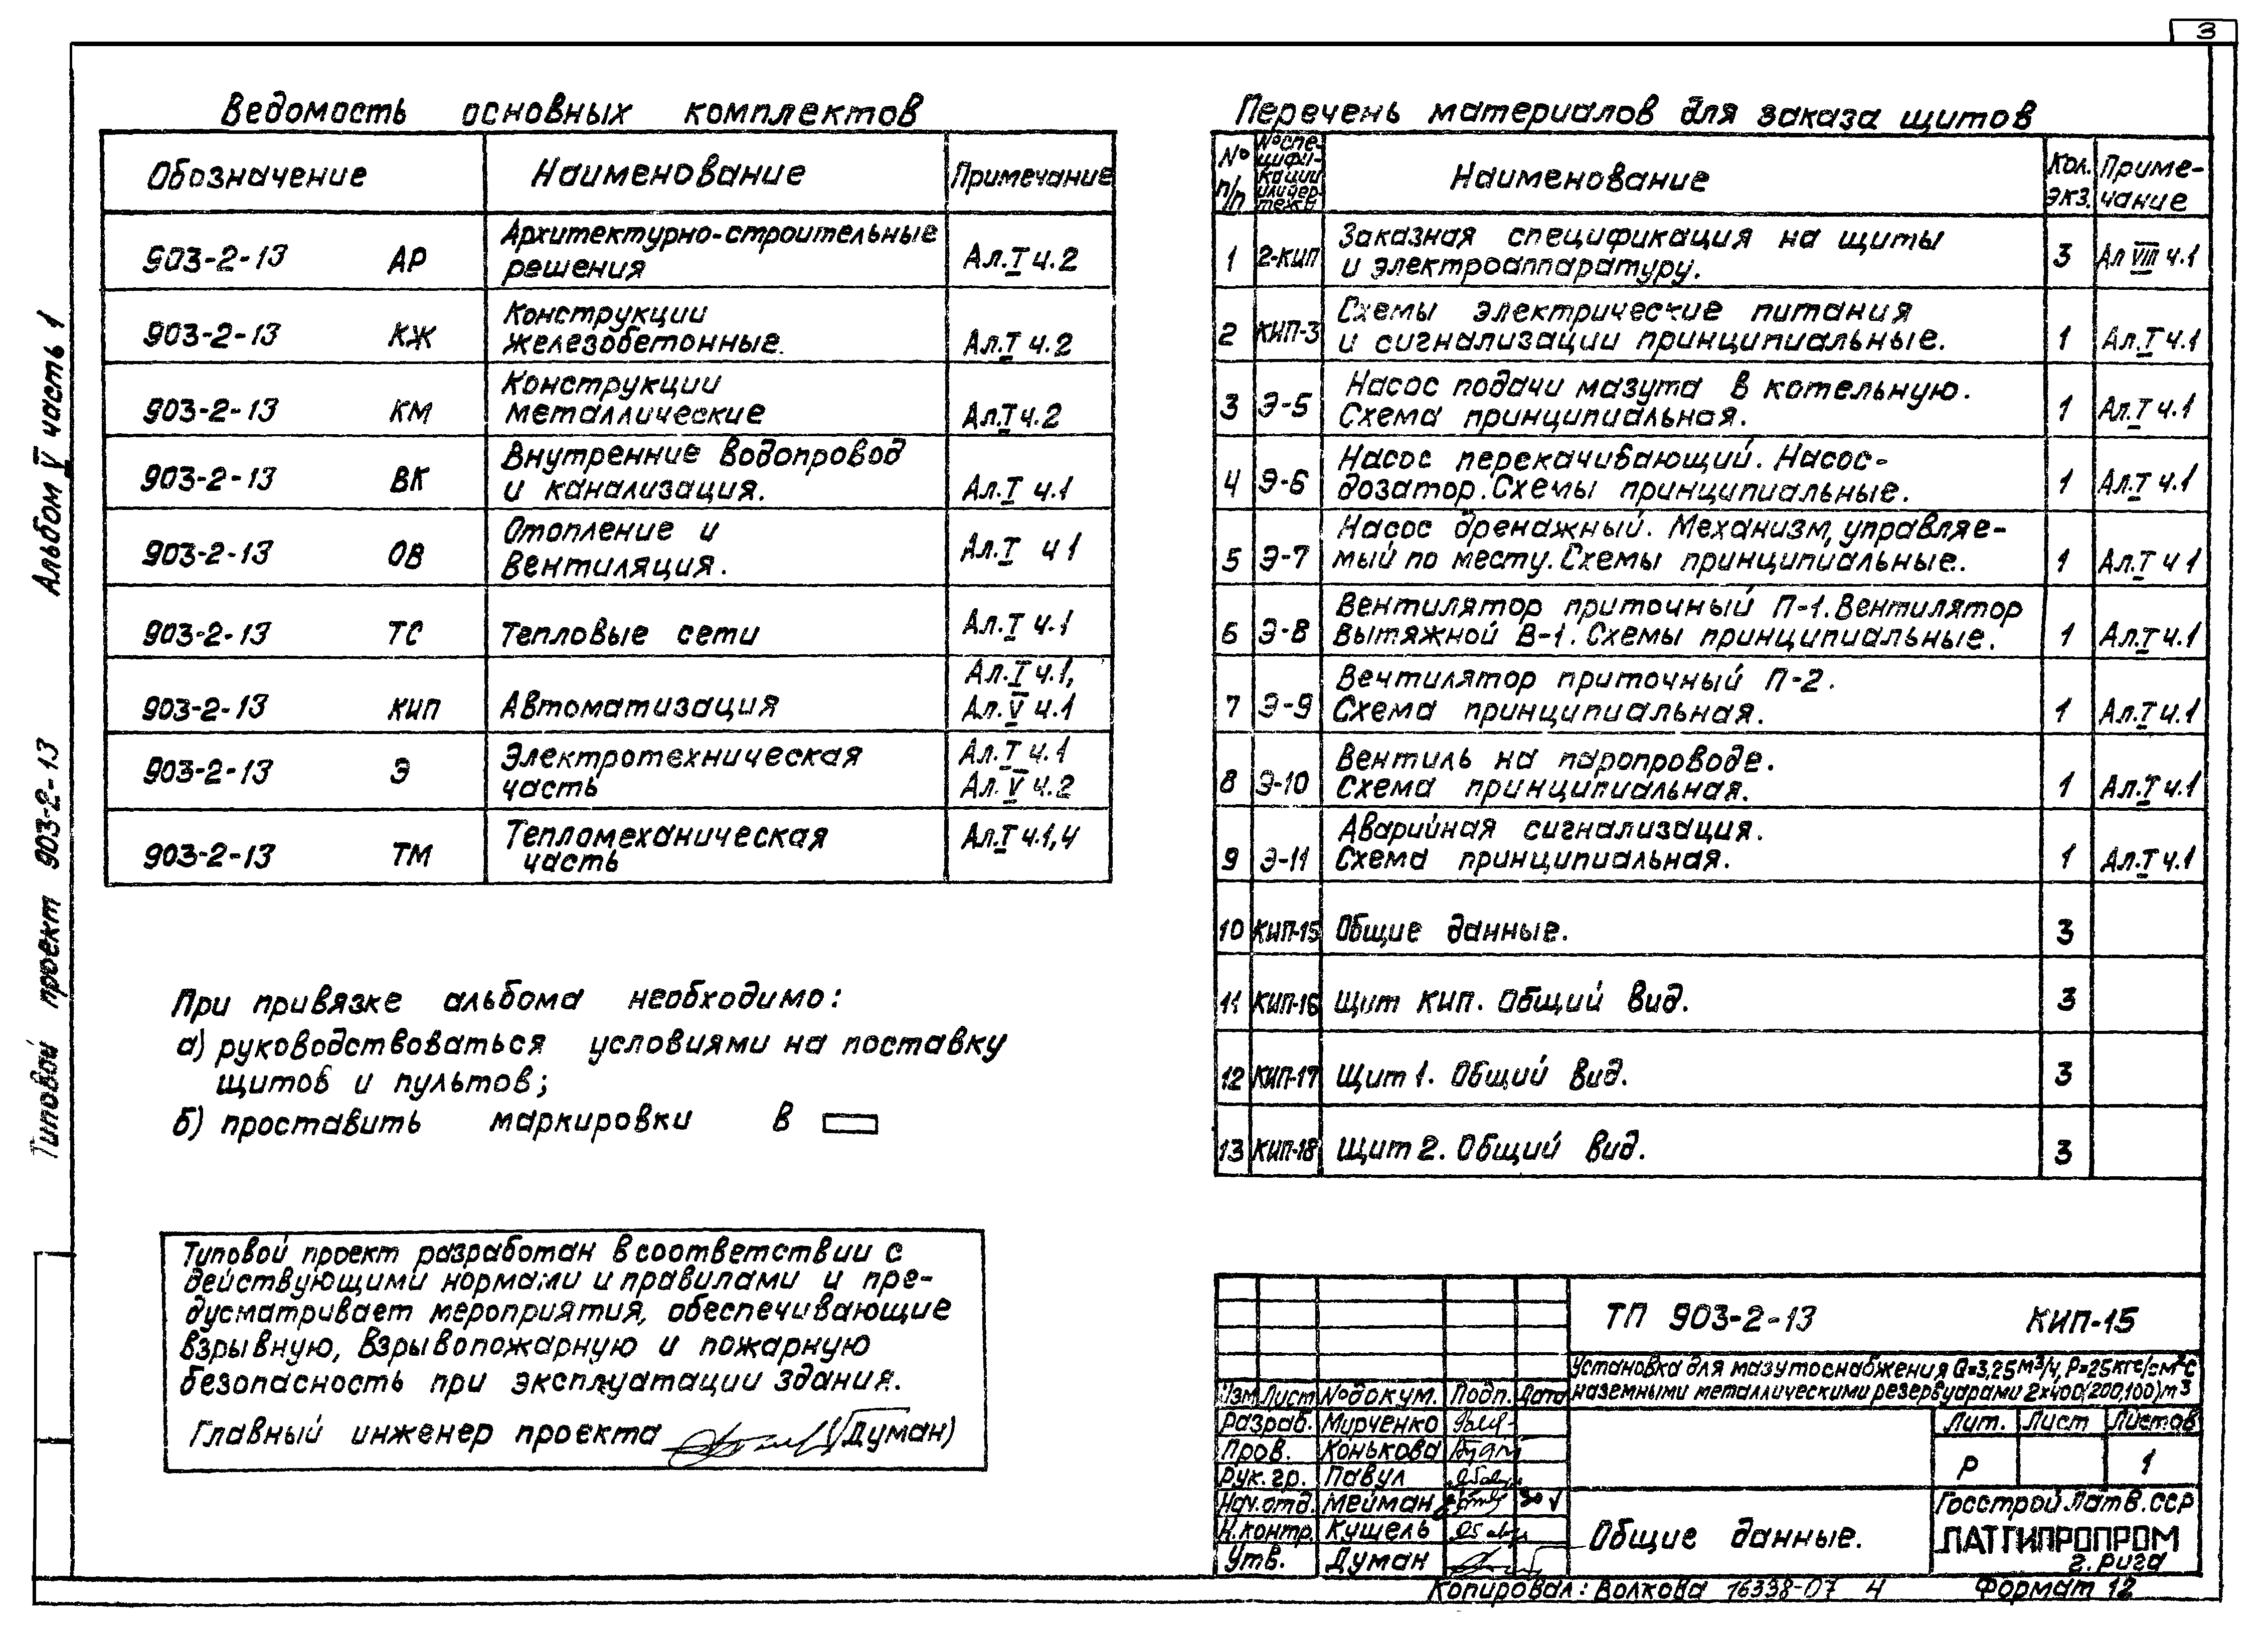 3
Ведомость основных комплектов
Обозначение Наименование Примечание
903-2-13 АР Архитектурно-строительные решения Ал.I ч.2
903-2-13 КЖ Конструкции железобетонные. Ал.I ч.2
903-2-13 КМ Конструкции металлические Ал.I ч.2
903-2-13 ВК Внутренние водопровод и канализация. Ал.I ч.1
903-2-13 ОВ Отопление и вентиляция. Ал.I ч 1
903-2-13 ТС Тепловые сети Ал.I ч.1
903-2-13 КИП Автоматизация Ал.I ч.1, Ал.V ч.1
903-2-13 Э Электротехническая часть Ал.I ч.1 Ал.V ч.2
903-2-13 ТМ Тепломеханическая часть Ал.I ч.1,4
При привязке альбома необходимо:
а) руководствоваться условиями на поставку
щитов и пультов;
б) проставить маркировки в
Типовой проект разработан в соответствии с
действующими нормами и правилами и пре-
дусматривает мероприятия, обеспечивающие
взрывную, взрывопожарную и пожарную
безопасность при эксплуатации здания.
Главный инженер проекта (Думан)
Перечень материалов для заказа щитов
№ п/п № спе-цифи-кации или чер-тежа Наименование Кол. экз. Приме-чание
1 2-КИП Заказная спецификация на щиты и электроаппаратуру. 3 Ал VIII ч.1
2 КИП-3 Схемы электрические питания и сигнализации принципиальные. 1 Ал.I ч.1
3 Э-5 Насос подачи мазута в котельную. Схема принципиальная. 1 Ал.I ч.1
4 Э-6 Насос перекачивающий. Насос-дозатор. Схемы принципиальные. 1 Ал.I ч.1
5 Э-7 Насос дренажный. Механизм, управляе-мый по месту. Схемы принципиальные. 1 Ал.I ч 1
6 Э-8 Вентилятор приточный П-1. Вентилятор вытяжной В-1. Схемы принципиальные. 1 Ал.I ч.1
7 Э-9 Вентилятор приточный П-2. Схема принципиальная. 1 Ал.I ч.1
8 Э-10 Вентиль на паропроводе. Схема принципиальная. 1 Ал.I ч.1
9 Э-11 Аварийная сигнализация. Схема принципиальная. 1 Ал.I ч.1
10 КИП-15 Общие данные. 3
11 КИП-16 Щит КИП. Общий вид. 3
12 КИП-17 Щит 1. Общий вид. 3
13 КИП-18 Щит 2. Общий вид. 3
ТП 903-2-13 КИП-15
Установка для мазутоснабжения Q=3,25 м³/ч, Р=25кгс/см² с
наземными металлическими резервуарами 2х400(200,100)м³
Изм Лист № докум. Подп. Дата
Разраб. Мирченко
Пров. Конькова
Рук. гр. Павул
Нач. отд. Мейман
Н. контр. Кущель
Утв. Думан
Лит. Лист Листов
Р 1
Общие данные.
Госстрой Латв. ССР
ЛАТГИПРОПРОМ
г. Рига
Копировал: Волкова 16338-07 4 Формат 12
Типовой проект 903-2-13 Альбом V часть 1